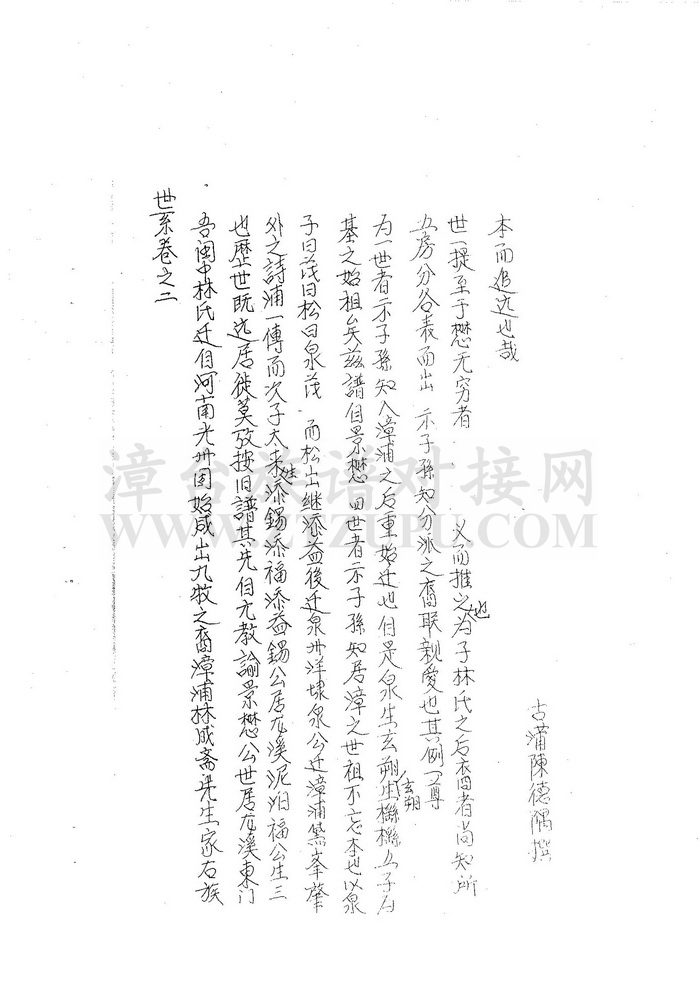 世系卷之二
吾闽中林氏迁自河南光州固始咸出九牧之裔漳浦林咸斋先生家右族
也歷世既远居徙莫攷按旧譜其先自元教諭景懋公世居龙溪東门
外之詩浦一傳而次子太来姓添錫添福添益錫公居龙溪泥泊福公生三
子曰茂曰松曰泉茂 而松出继添益後迁泉州洋埭泉公迁漳浦黛峯肇
基之始祖矣兹譜自景懋四世者示子孫知居漳之世祖不忘本也以泉
为一世者示子孫知入漳浦之后重始迁也自是泉生玄朔玄朔生楙楙五子为
五房分各表而出 示子孫知分派之裔联親爱也其例一尊
世一提至于懋无穷者 义而推之也为子林氏之后裔者尚知所
本而追远也哉
古浦陳德隅撰
漳台族谱对接网
WWW.ZTZUPU.COM